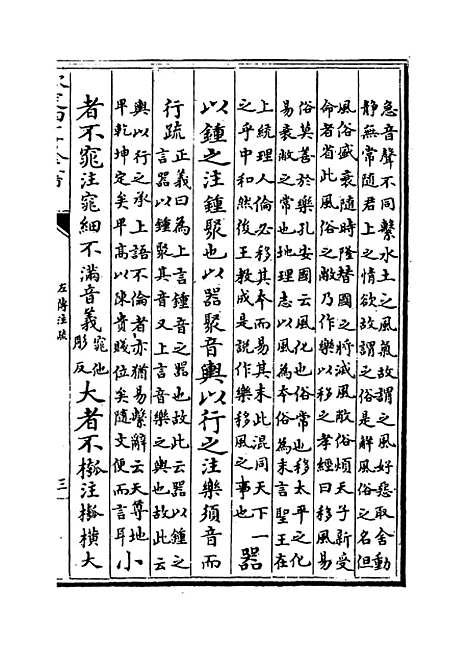 急音聲不同繫水土之風氣故謂之風好惡取舍動
靜無常隨君上之情欲故謂之俗是解風俗之名但
風俗盛衰隨時隆替國之將滅風敝俗煩天子新受
命者省此風俗之敝乃作樂以移之孝經曰移風易
俗莫善於樂孔安國云風化也俗常也移太平之化
易衰敝之常也地理志以風為本俗為末言聖王在
上統理人倫必移其本而易其末此混同天下一
之乎中和然後王教成是說作樂移風之事也
器
以鍾之注鍾聚也以器聚音輿以行之注樂須音而
行疏
正義曰為上言鍾音之器也故此云器以鍾之
言器以鍾聚其音又上言音樂之輿也故此云
輿以行之承上語不倫者亦猶易繫辭云天尊地
卑乾坤定矣卑高以陳貴賤位矣隨文便而言耳
小
者不窕注窕細不滿音義
窕他
彫反
大者不摦注摦橫大
左傳注疏
三